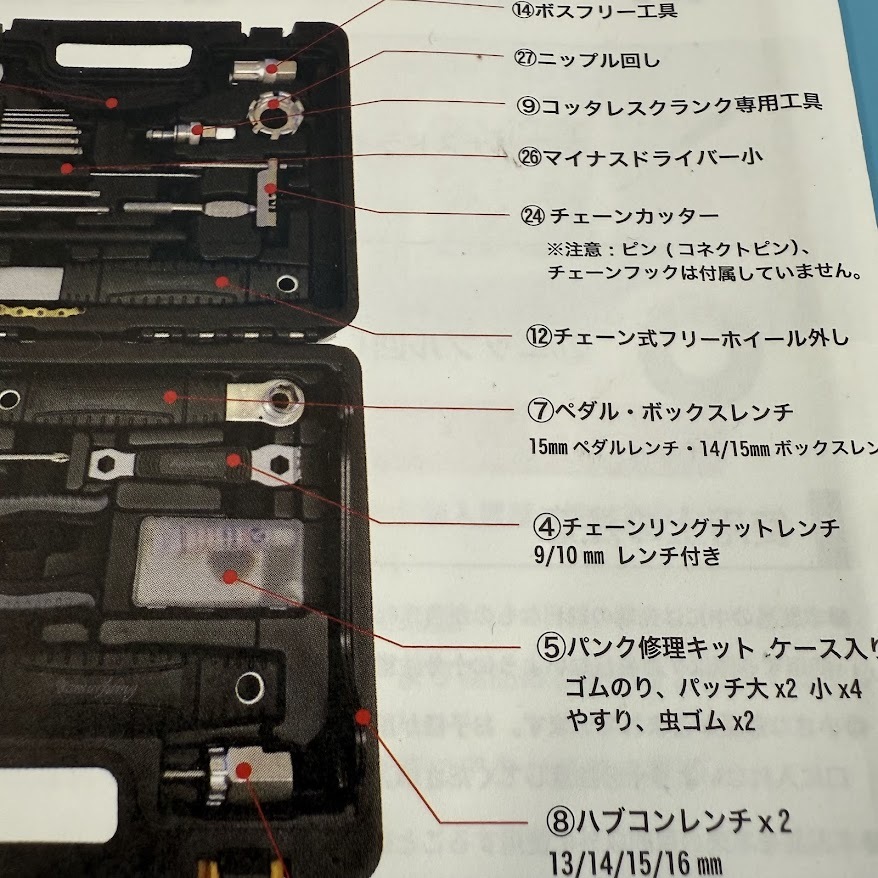 ⑭ボスフリー工具
㉗ニップル回し
⑨コッタレスクランク専用工具
㉖マイナスドライバー小
㉔チェーンカッター
※注意：ピン（コネクトピン）、
チェーンフックは付属していません。
⑫チェーン式フリーホイール外し
⑦ペダル・ボックスレンチ
15mmペダルレンチ・14/15mmボックスレン
④チェーンリングナットレンチ
9/10㎜ レンチ付き
⑤パンク修理キット ケース入り
ゴムのり、パッチ大x2 小x4
やすり、虫ゴムx2
⑧ハブコンレンチx2
13/14/15/16㎜